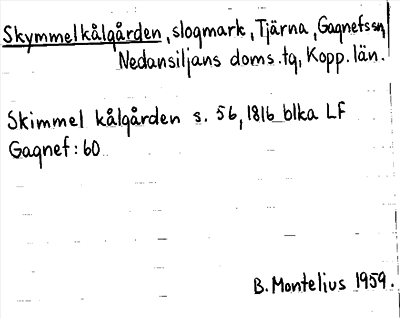 Skymmelkålgården, slogmark, Tjärna, Gagnefssn,
Nedansiljans doms.tg, Kopp.län.
Skimmel kålgården s. 56, 1816 blka LF
Gagnef: 60
B. Montelius 1959.